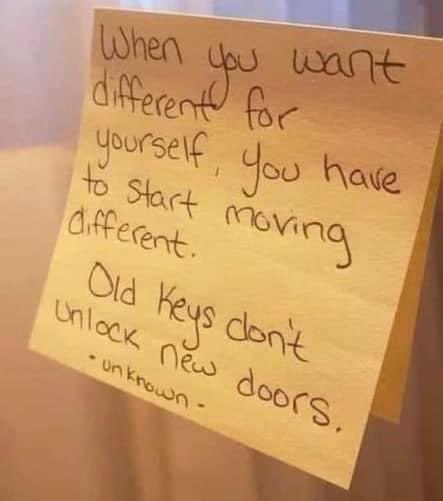 When you want
different for
yourself, you have
to start moving
different.
Old keys don't
unlock new doors.
• unknown -